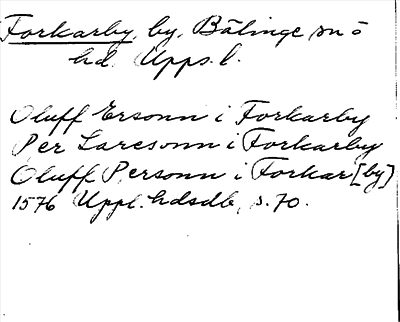 Forkarby, by, Bälinge sn o
hd. Upps. l.
Oluff Ersonn i Forkarby
Per Laresonn i Forkarby
Oluff Personn i Forkar[by]
1576 Uppl. hdsdb, s. 70.